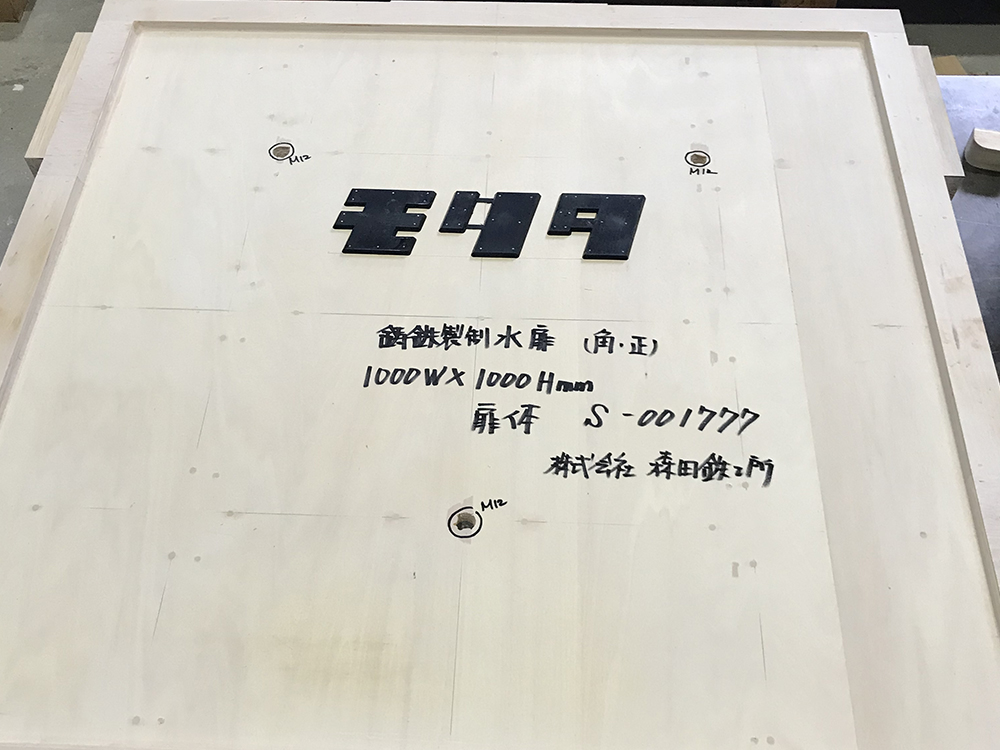 M12
M12
モリタ
鋳鉄製制水扉 (角・正)
1000W× 1000Hmm
扉体 S-001777
株式会社 森田鉄工所
M12